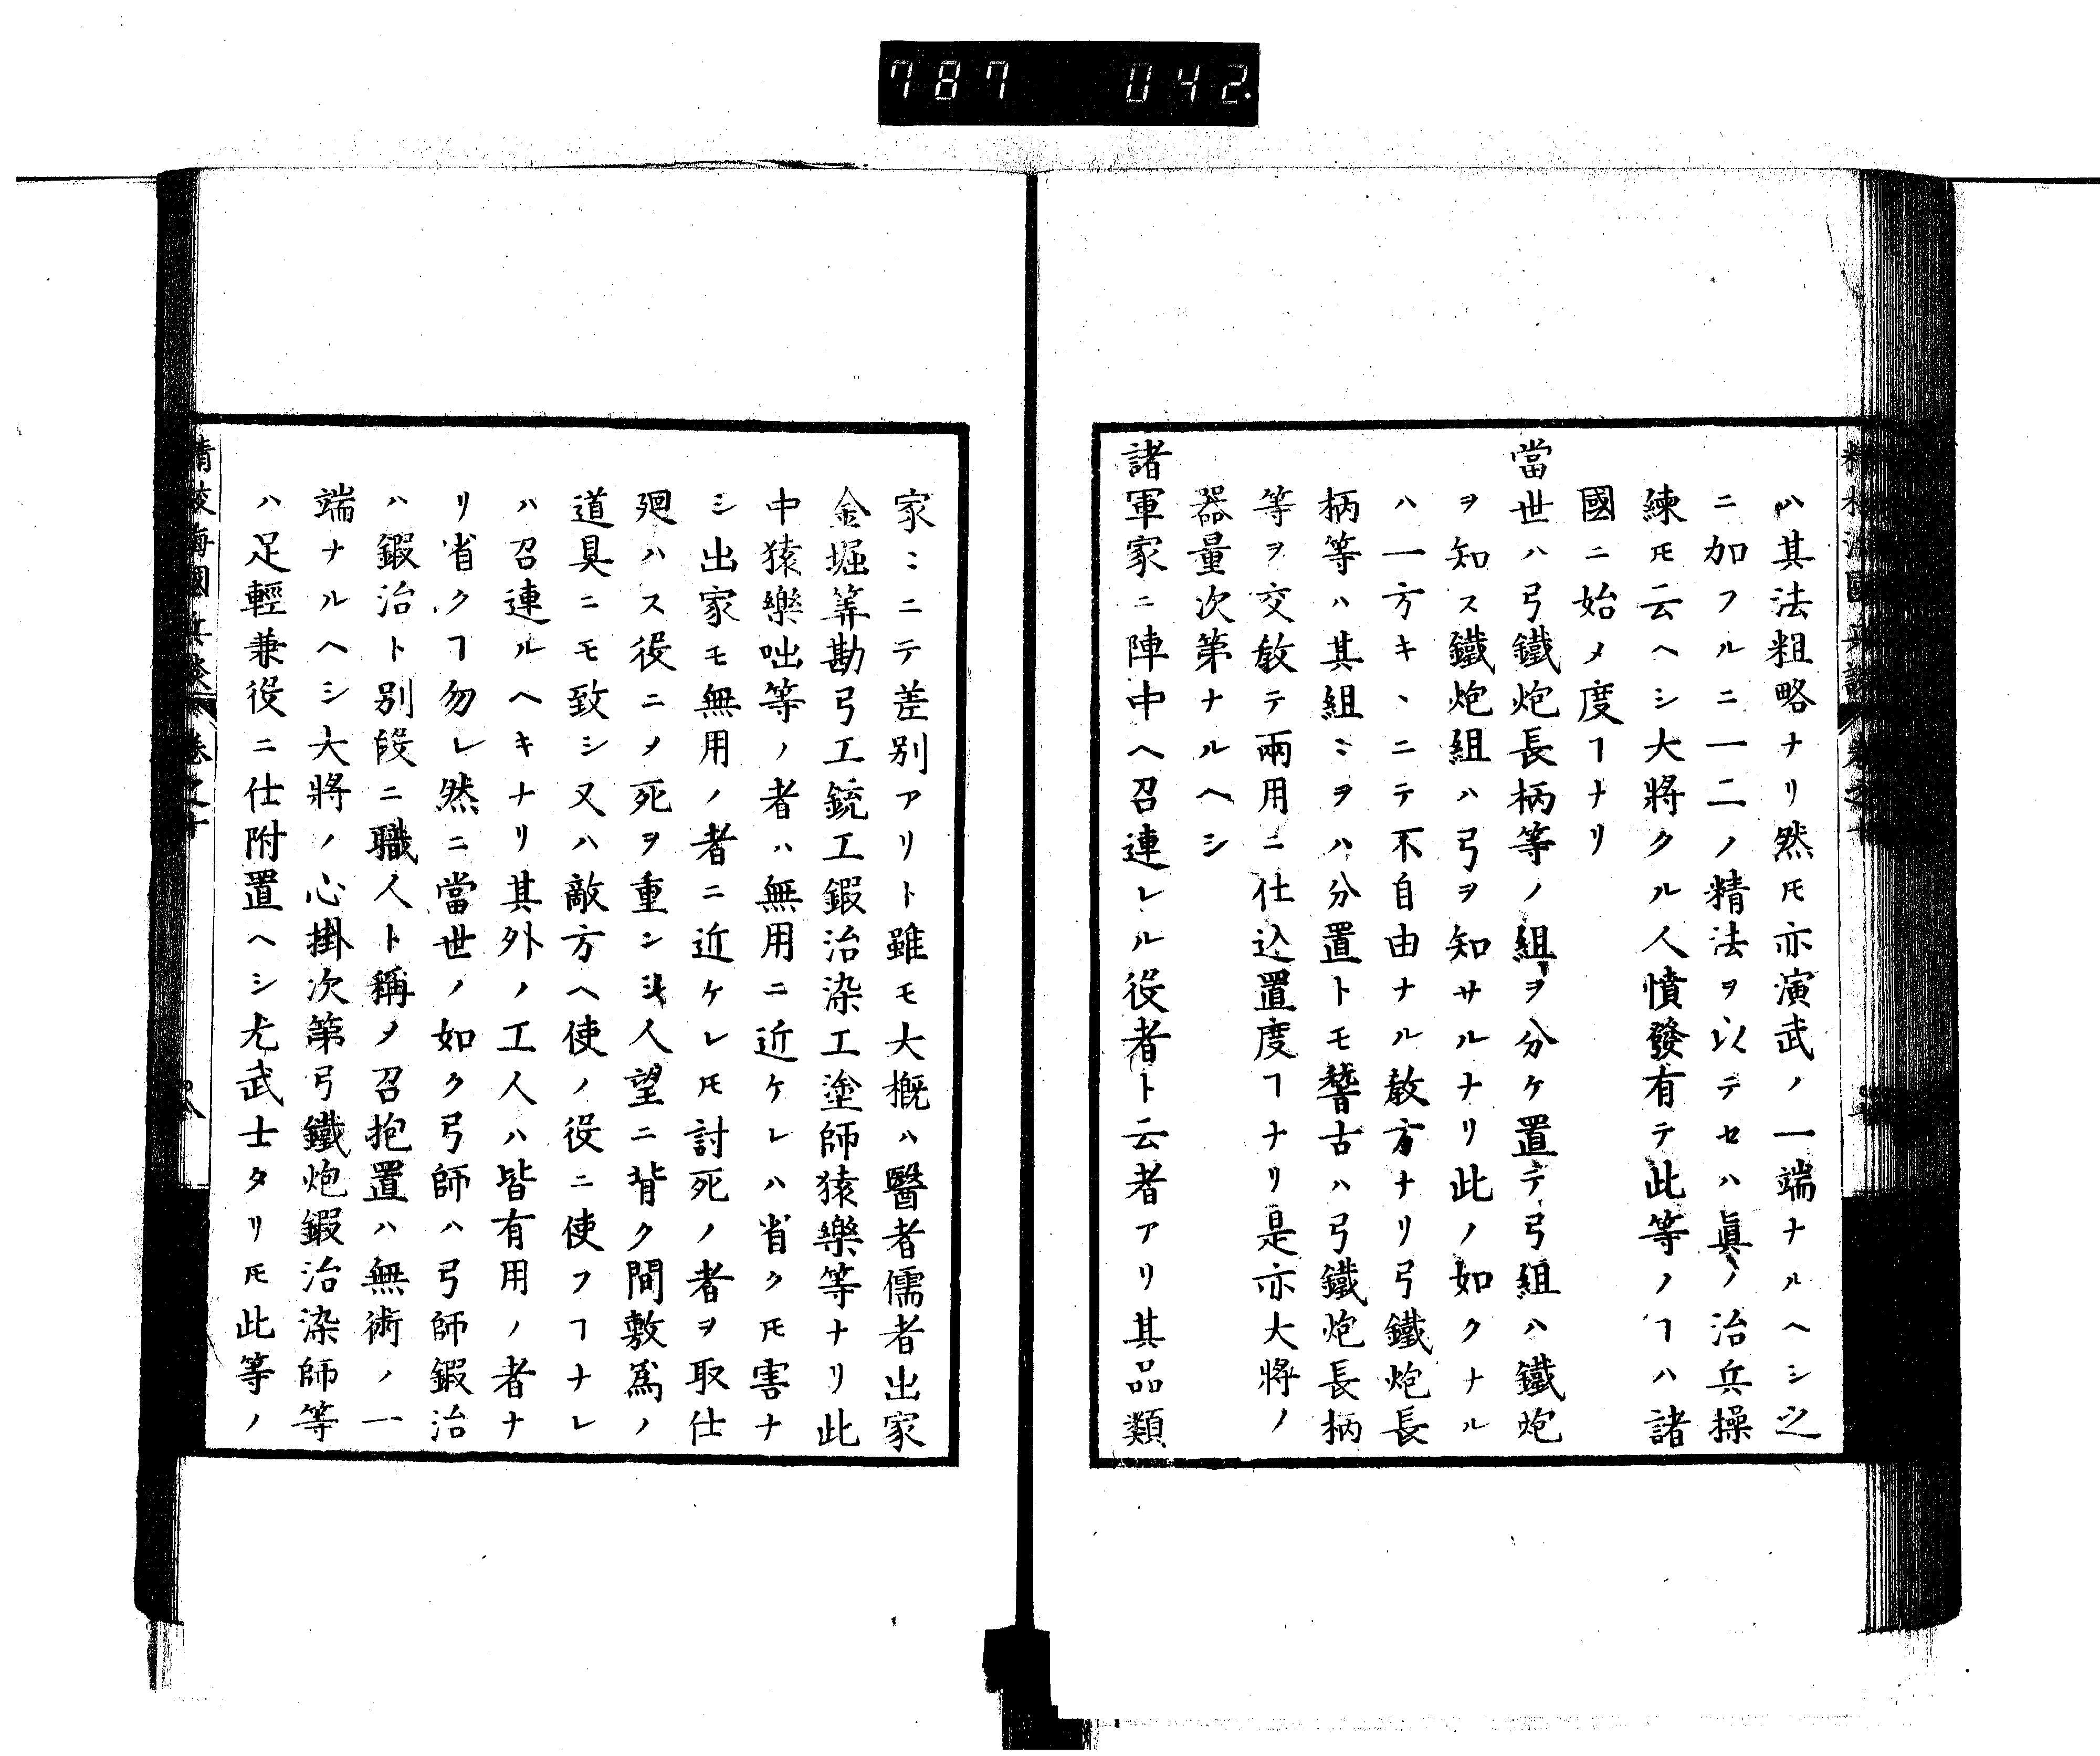 787 042
ハ其法粗略ナリ然㕝亦演武ノ一端ナルヘシ之
ニ加フルニ一二ノ精法ヲ以テセハ眞ノ治兵操
練𪜈云ヘシ大將クル人憤發有テ此等ノヿハ諸
國ニ始メ度ヿナリ
當世ハ弓鐵炮長柄等ノ組ヲ分ケ置テ弓組ハ鐵炮
ヲ知ス鐵炮組ハ弓ヲ知サルナリ此ノ如クナル
ハ一方キヽニテ不自由ナル教方ナリ弓鐵炮長
柄等ハ其組〻ヲハ分置トモ警古ハ弓鐵炮長柄
等ヲ交教テ兩用ニ仕込置度ヿナリ是亦大將ノ
器量次第ナルヘシ
諸軍家ニ陣中ヘ召連レル役者ト云者アリ其品類
家〻ニテ差別アリト雖モ大概ハ醫者儒者出家
金堀算勘弓工銃工鍜冶染工塗師猿樂等ナリ此
中猿樂咄等ノ者ハ無用ニ近ケレハ省ク𪜈害ナ
シ出家モ無用ノ者ニ近ケレ𪜈討死ノ者ヲ取仕
廻ハス役ニメ死ヲ重ンシ人望ニ背ク間敷爲ノ
道具ニモ致シ又ハ敵方ヘ使ノ役ニ使フヿナレ
ハ召連ルヘキナリ其外ノ工人ハ皆有用ノ者ナ
リ省クヿ勿レ然ニ當世ノ如ク弓師ハ弓師鍜冶
ハ鍜冶ト別段ニ職人ト稱メ召抱置ハ無術ノ一
端ナルヘシ大將ノ心掛次第弓鐵炮鍜冶染師等
ハ足輕兼役ニ仕附置ヘシ尤武士タリ𪜈此等ノ
精校海國兵談 卷之十